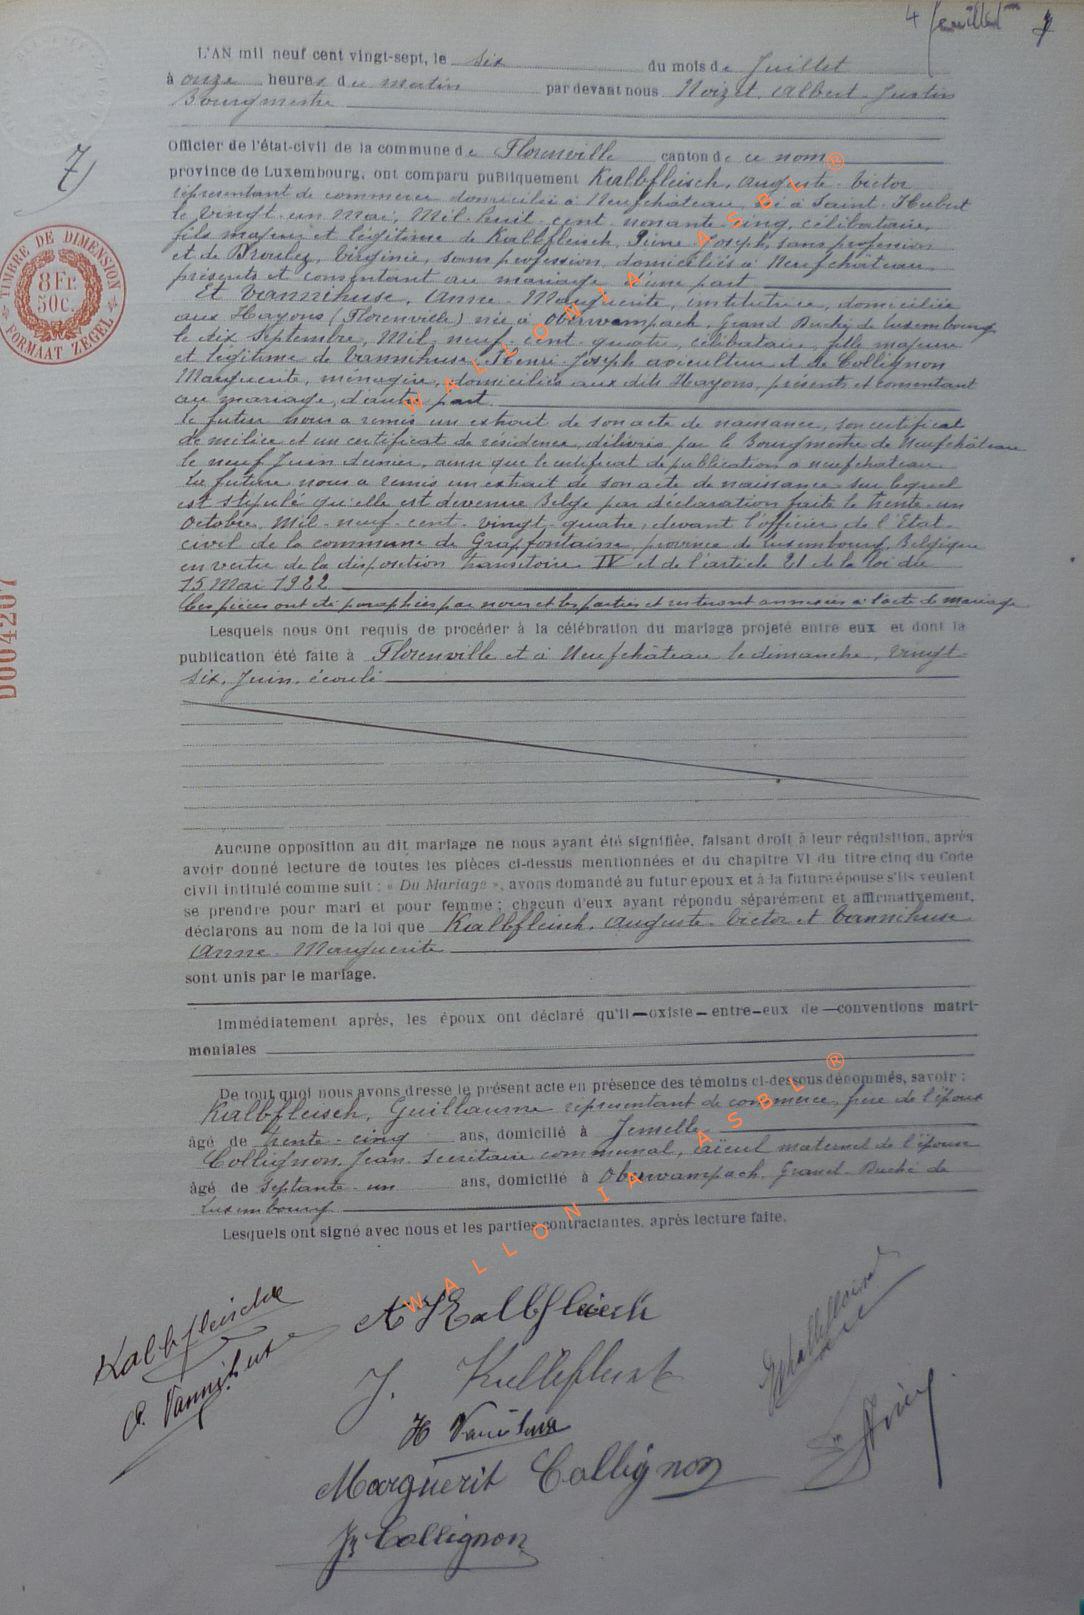 4 feuillet
7
L'AN mil neuf cent vingt-sept, le six du mois de Juillet
à onze heures du matin par devant nous Noizet, Albert Justin
Bourgmestre
Officier de l'état-civil de la commune de Florenville canton de ce nom
province de Luxembourg, ont comparu publiquement Kalbfleisch, Auguste Victor
représentant de commerce domicilié à Neufchâteau, né à Saint-Hubert
le vingt-un Mai, Mil-huit-cent nonante-cinq, célibataire,
fils majeur et légitime de Kalbfleisch, Joseph, sans profession
et de Virginie, sans profession, domiciliés à Neufchâteau
présents et consentant au mariage d'une part
Et Vannihuse, Anne-Marguerite, institutrice, domiciliée
aux Hayons (Florenville) née à Oberwampach, Grand Duché de Luxembourg
le dix Septembre, Mil-neuf-cent-quatre, célibataire, fille majeure
et légitime de Vannihuse, Henri-Joseph aviculteur et de Collignon
Marguerite, ménagère, domiciliés aux dits Hayons, présents et consentant
au mariage, d'autre part.
Le futur nous a remis un extrait de son acte de naissance, son certificat
de milice et un certificat de résidence, délivrés par le Bourgmestre de Neufchâteau
le neuf Juin dernier, ainsi que le certificat de publication à Neufchâteau
La future nous a remis un extrait de son acte de naissance sur lequel
est stipulé qu'elle est devenue Belge par déclaration faite le trente-un
Octobre, Mil-neuf-cent-vingt-quatre, devant l'officier de l'Etat-
civil de la commune de Grapfontaine, province de Luxembourg, Belgique
en vertu de la disposition transitoire IV et de l'article 21 de la loi du
15 Mai 1922
Ces pièces ont été paraphées par nous et les parties et resteront annexées à l'acte de mariage
Lesquels nous ont requis de procéder à la célébration du mariage projeté entre eux et dont la
publication été faite à Florenville et à Neufchâteau le dimanche, vingt-
six, Juin, écoulé
Aucune opposition au dit mariage ne nous ayant été signifiée, faisant droit à leur réquisition, après
avoir donné lecture de toutes les pièces ci-dessus mentionnées et du chapitre VI du titre cinq du Code
civil intitulé comme suit : « Du Mariage », avons domandé au futur époux et à la future épouse s'ils veulent
se prendre pour mari et pour femme ; chacun d'eux ayant répondu séparément et affirmativement,
déclarons au nom de la loi que Kalbfleisch, Auguste-Victor et Vannihuse
Anne-Marguerite
sont unis par le mariage.
Immédiatement après, les époux ont déclaré qu'il existe entre eux de conventions matri-
moniales
De tout quoi nous avons dressé le présent acte en présence des témoins ci-dessous dénommés, savoir :
Kalbfleisch, Guillaume représentant de commerce, frère de l'époux
âgé de trente-cinq ans, domicilié à Jemelle
Collignon, Jean Secrétaire communal, aïeul maternel de l'épouse
âgé de septante-un ans, domicilié à Oberwampach, Grand-Duché de
Luxembourg
Lesquels ont signé avec nous et les parties contractantes, après lecture faite.
Kalbfleisch
A. Vannihuse
A Kalbfleisch
J. Kalbfleisch
H Vannihuse
Marguerit Collignon
Jn Collignon
7)
TIMBRE DE DIMENSION
8 Fr.
50c.
FORMAAT ZEGEL
D004207
WALLONIA ASBL ®
WALLONIA ASBL ®